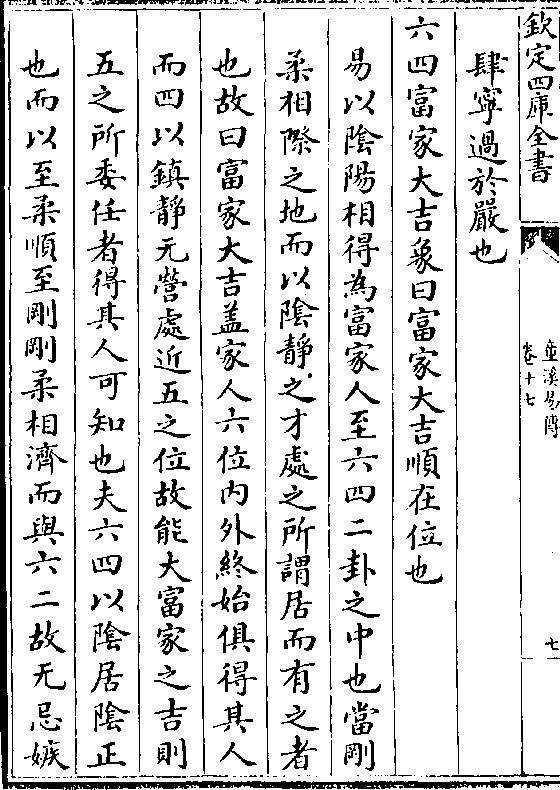 欽定四庫全書
童溪易傳
卷十七
七
肆寧過於嚴也
六四富家大吉象曰富家大吉順在位也
易以陰陽相得為富家人至六四二卦之中也當剛
柔相際之地而以陰靜之才處之所謂居而有之者
也故曰富家大吉盖家人六位内外終始俱得其人
而四以鎮靜无營處近五之位故能大富家之吉則
五之所委任者得其人可知也夫六四以陰居陰正
也而以至柔順至剛剛柔相濟而與六二故无忌嫉